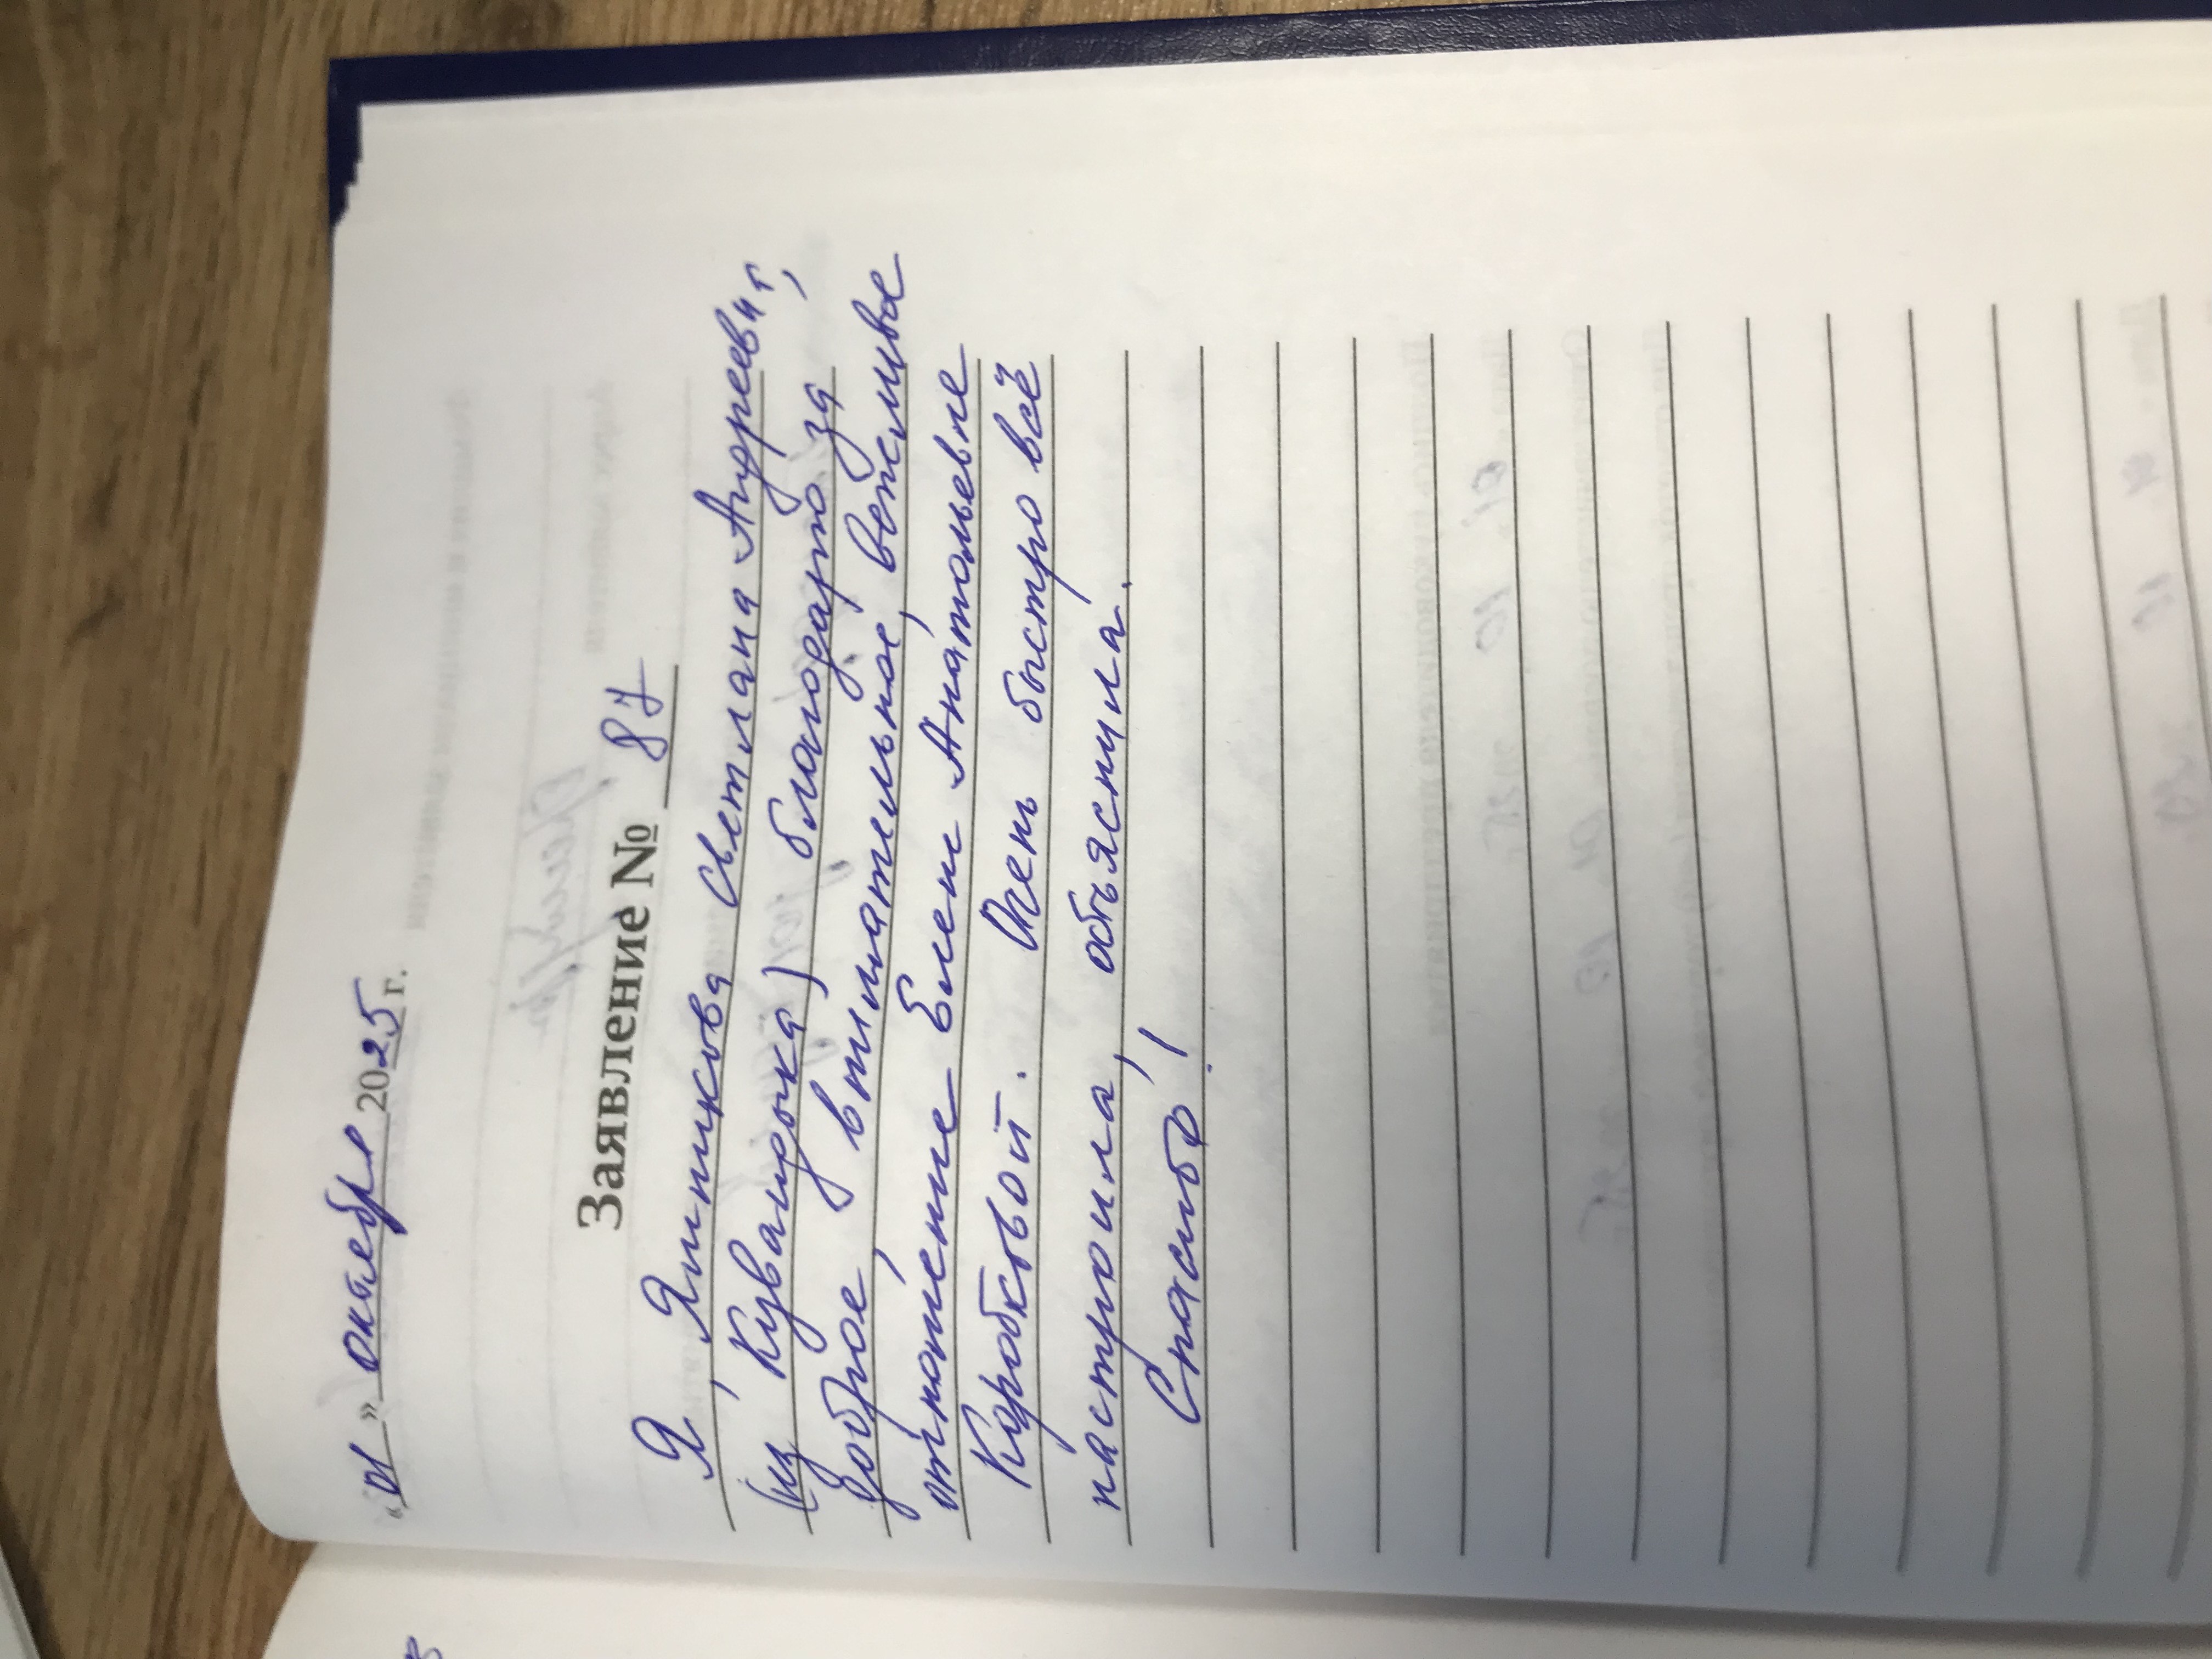 «01» октября 2025 г.
Заявление № 87
Я, Ямникова Светлана Андреевна,
(из Кувандыка) благодарю за
доброе, внимательное, вежливое
отношение Елене Анатольевне
Коробковой. Очень быстро всё
настроила, объяснила.
Спасибо!